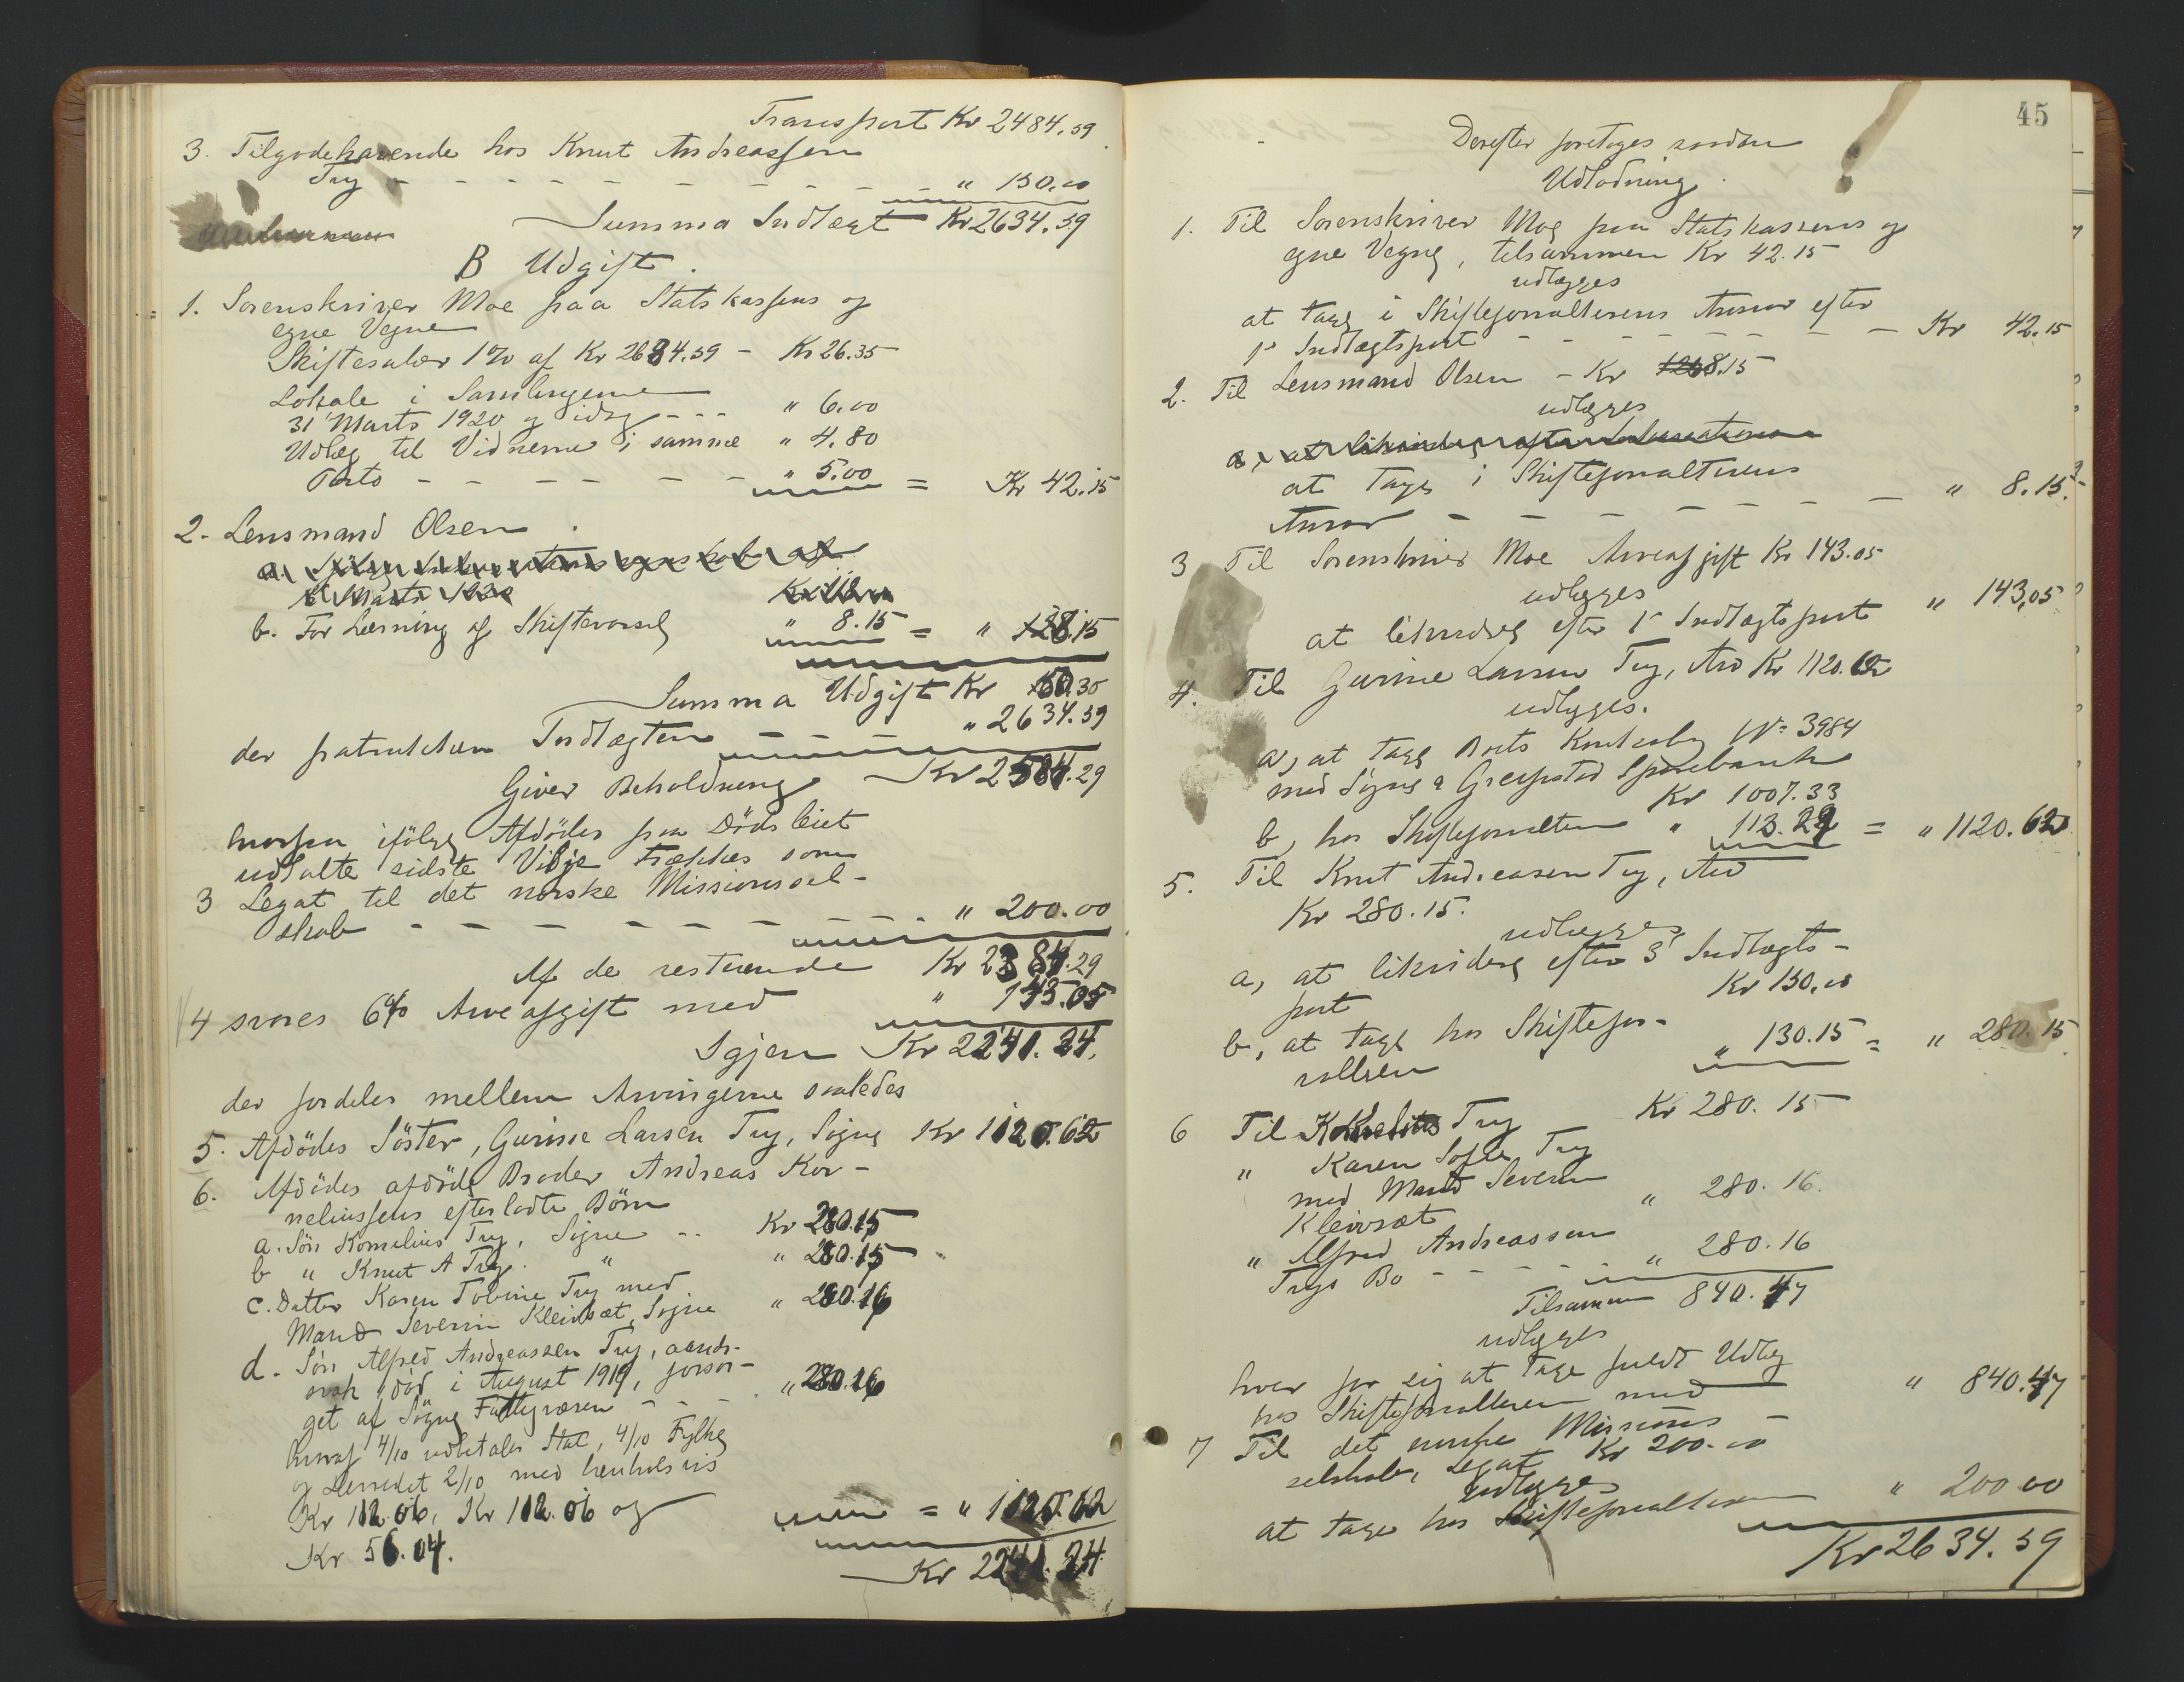 Transport Kr 2484.59
3. Tilgodehavende hos Knut Andreassen
Try - - - - - - - - - " 150.00
Summa Indtægt Kr 2634.59
B Udgift.
1. Sorenskriver Moe paa Statskassens og
egne Vegne
Skiftesalær 1% af Kr 2634.59 - Kr 26.35
Lokale i Samlingerne
31 Marts 1920 og idag - - - " 6.00
Udlæg til Vidnerne i samme " 4.80
Porto - - - - - - " 5.00 = Kr 42.15
2. Lensmand Olsen.
b. For Læsning af Skiftevarsel " 8.15 = " 8.15
Summa Udgift Kr 50.30
der fratrukken Indtægten - - - " 2634.59
Giver Beholdning Kr 2584.29
hvorfra ifølge Afdødes paa Dødsleiet
udtalte sidste Vilje trækkes som
3 Legat til det norske Missionssel-
skab - - - - - - - - " 200.00
Af de resterende Kr 2384.29
4 svares 6% Arveafgift med " 143.05
Igjen Kr 2241.24.
der fordeles mellem Arvingerne saaledes
5. Afdødes Søster, Gurine Larsen Try, Søgne Kr 1120.62
6. Afdødes afdøde Broder Andreas Kor-
neliussens efterladte Børn
a. Søn Kornelius Try, Søgne - - Kr 280.15
b " Knut A Try. " " 280.15
c. Datter Karen Tobine Try med
Mand Severin Kleivsæt, Søgne " 280.16
d. Søn Alfred Andreassen Try, aands-
svak, død i August 1919, forsør-
get af Søgne Fattigvæsen - - - " 280.16
hvoraf 4/10 udbetales Stat, 4/10 Fylke
og Herredet 2/10 med henholsvis
Kr 112.06, Kr 112.06 og
Kr 56.04. = " 1120.62
Kr 2241.24
45
Derefter foretages saadan
Udlodning.
1. Til Sorenskriver Moe paa Statskassens og
egne Vegne, tilsammen Kr 42.15
udlægges
at tage i Skifteforvalterens Ansvar efter
1' Indtægtspost - - - - - - - Kr 42.15
2. Til Lensmand Olsen - Kr 8.15
udlægges
at tage i Skifteforvalterens
Ansvar - - - - - - - - " 8.15
3 Til Sorenskriver Moe Arveafgift Kr 143.05
udlægges
at likvidere efter 1' Indtægtspost " 143.05
4. Til Gurine Larsen Try, Arv Kr 1120.62
udlægges.
a, at tage Boets Kontrabog No 3984
med Søgne & Greipstad Sparebank
Kr 1007.33
b, hos Skifteforvalteren " 113.29 = " 1120.62
5. Til Knut Andreasen Try, Arv
Kr 280.15.
udlægges
a, at likvidere efter 3' Indtægts-
post Kr 150.00
b, at tage hos Skiftefor-
valteren " 130.15 = " 280.15
6 Til Kornelius Try Kr 280.15
" Karen Sofie Try
med Mand Severin
Kleivsæt " 280.16.
" Alfred Andreassen
Trys Bo - - - - - " 280.16
Tilsammen 840.47
udlægges
hver for sig at tage fuldt Udlæg
hos Skifteforvalteren med " 840.47
7 Til det norske Missions-
selskab, Legat Kr 200.00
udlægges
at tage hos Skifteforvalteren " 200.00
Kr 2634.59